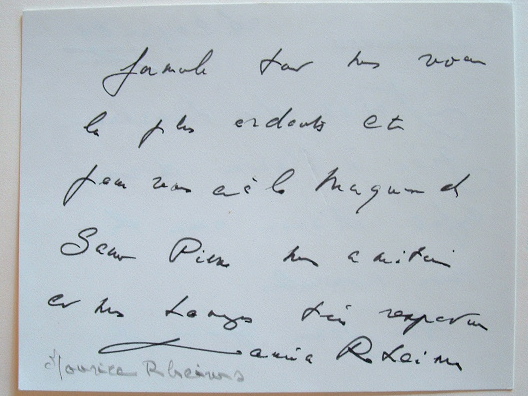 formule tous mes vœux
les plus ardents et
pour vous et à la Marquise de
Saint Pierre mes amitiés
et mes hommages très respectueux
Maurice Rheims
Maurice Rheims